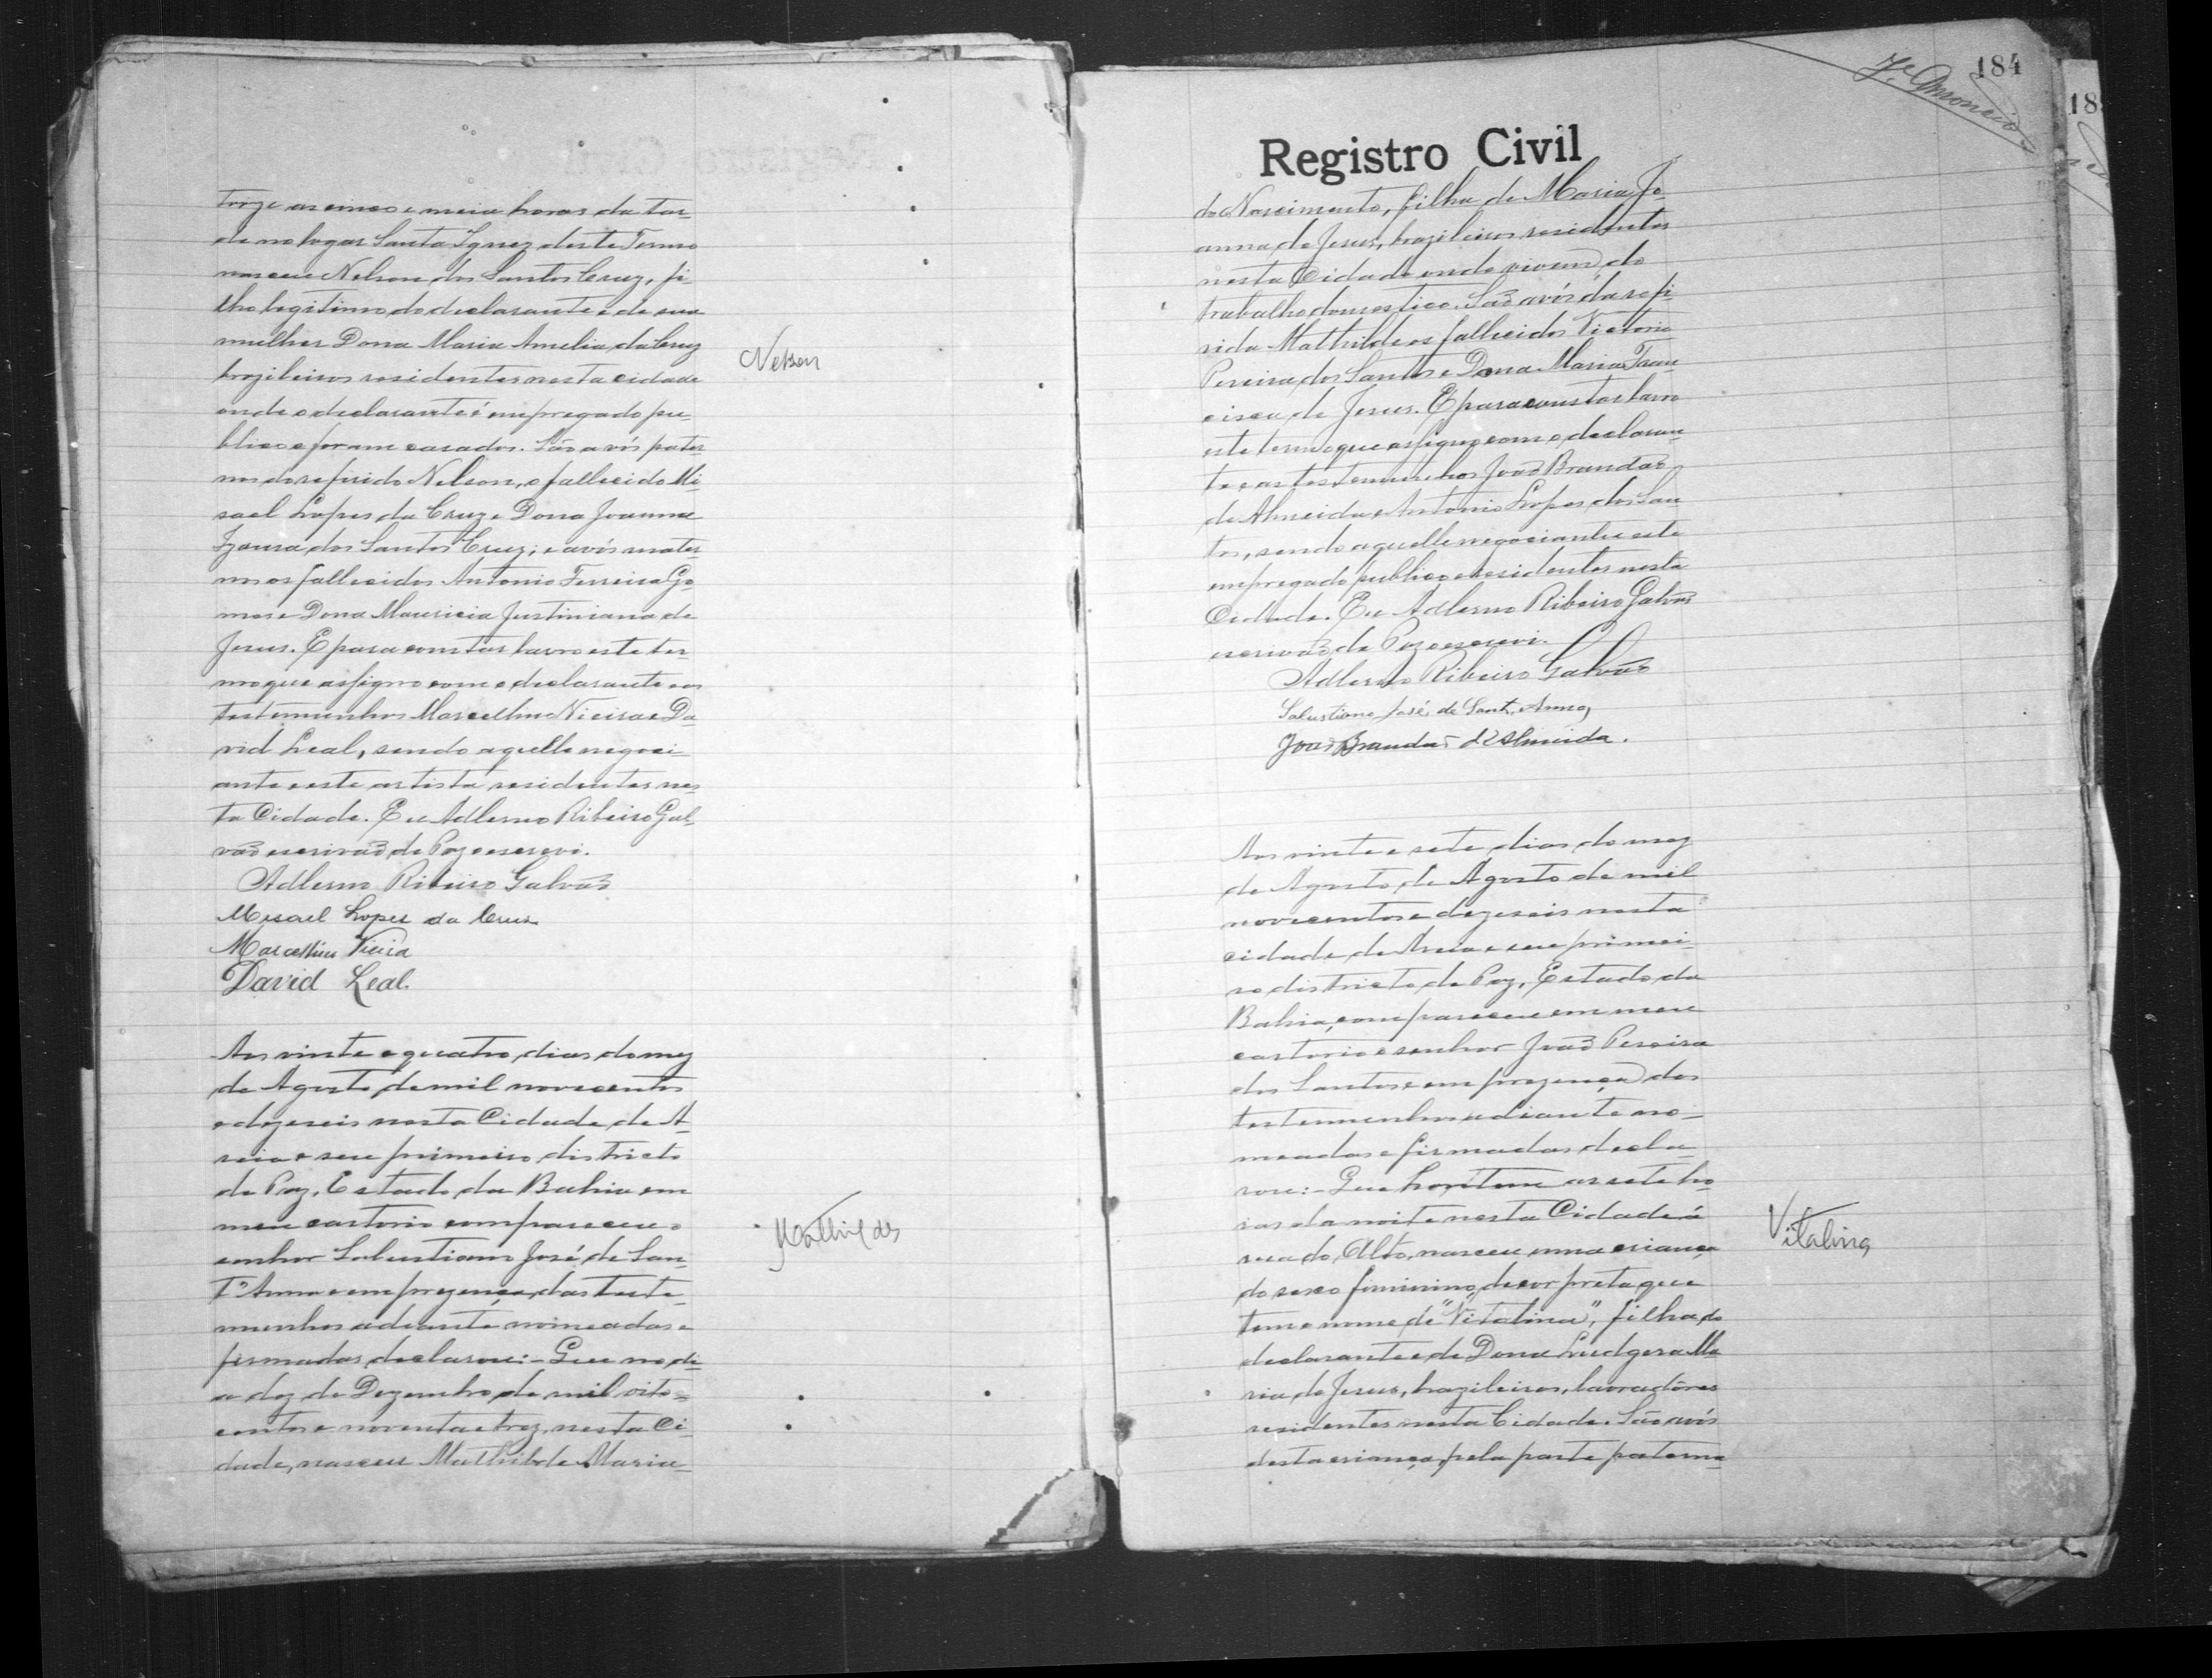 torze as cinco e meia horas da tar-
de no logar Santa Ignez deste Termo
nasceu Nelson dos Santos Cruz, fi-
lho legitimo do declarante e de sua
mulher Dona Maria Amelia da Cruz
brazileiros residentes nesta cidade
onde o declarante é empregado pu-
blico e foram casados. São avós pater-
nos do referido Nelson, o fallecido Mi-
sael Lopes da Cruz e Dona Joanna
dos Santos Cruz; e avós mater-
nos os fallecidos Antonio Ferreira Go-
mes e Dona Mauricia Justiniana de
Jesus. E para constar lavro este ter-
mo que assigno com o declarante e as
testemunhas Marcellino Vieira e Da-
vid Leal, sendo aquelle negoci-
ante e este artista residentes nes-
ta Cidade. Eu Adlermo Ribeiro Gal-
vão escrivão de Paz o escrevi.
Adlermo Ribeiro Galvão
Mesael Lopes da Cruz
Marcellino Vieira
David Leal.
Nelson
Aos vinte e quatro dias do mez
de Agosto de mil novecentos
e dezeseis nesta Cidade de A-
reia e seu primeiro districto
de Paz, Estado da Bahia em
meu cartorio compareceu o
senhor Salustiano José de San-
t'Anna e em prezença das teste-
munhas adeante nomeadas e
firmadas, declarou:- Que no di-
a dez de Dezembro de mil oito-
centos e noventa e trez, nesta Ci-
dade, nasceu Mathilde Maria
Mathildes
184
Registro Civil
do Nascimento, filha de Maria Jo-
anna de Jesus, brazileiros residentes
nesta Cidade onde vivem do
trabalho domestico. São avós da refe-
rida Mathilde os fallecidos Victorio
Pereira dos Santos e Dona Maria Fran-
cisca de Jesus. E para constar lavro
este termo que assigno com o declaran-
te e as testemunhas João Brandão
de Almeida e Antonio Lopes dos San-
tos, sendo aquelle negociante e este
empregado publico e residentes nesta
Cidade. Eu Adlermo Ribeiro Galvão
escrivão de Paz o escrevi.
Adlermo Ribeiro Galvão
Salustiano José de Sant'Anna,
João Brandão d'Almeida.
Aos vinte e sete dias do mez
de Agosto de Agosto de mil
novecentos e dezeseis nesta
cidade de Areia e seu primei-
ro districto de Paz, Estado da
Bahia, compareceu em meu
cartorio o senhor João Pereira
dos Santos e em prezença das
testemunhas adiante no-
meadas e firmadas decla-
rou:- Que hontem as sete ho-
ras da noite nesta Cidade á
rua do Alto, nasceu uma criança
do sexo feminino, de cor preta que
tem o nome de "Vitalina", filha do
declarante e de Dona Ludgera Ma-
ria de Jesus, brazileiros, lavradores
residentes nesta Cidade. São avós
desta criança, pela parte paterna
Vitalina